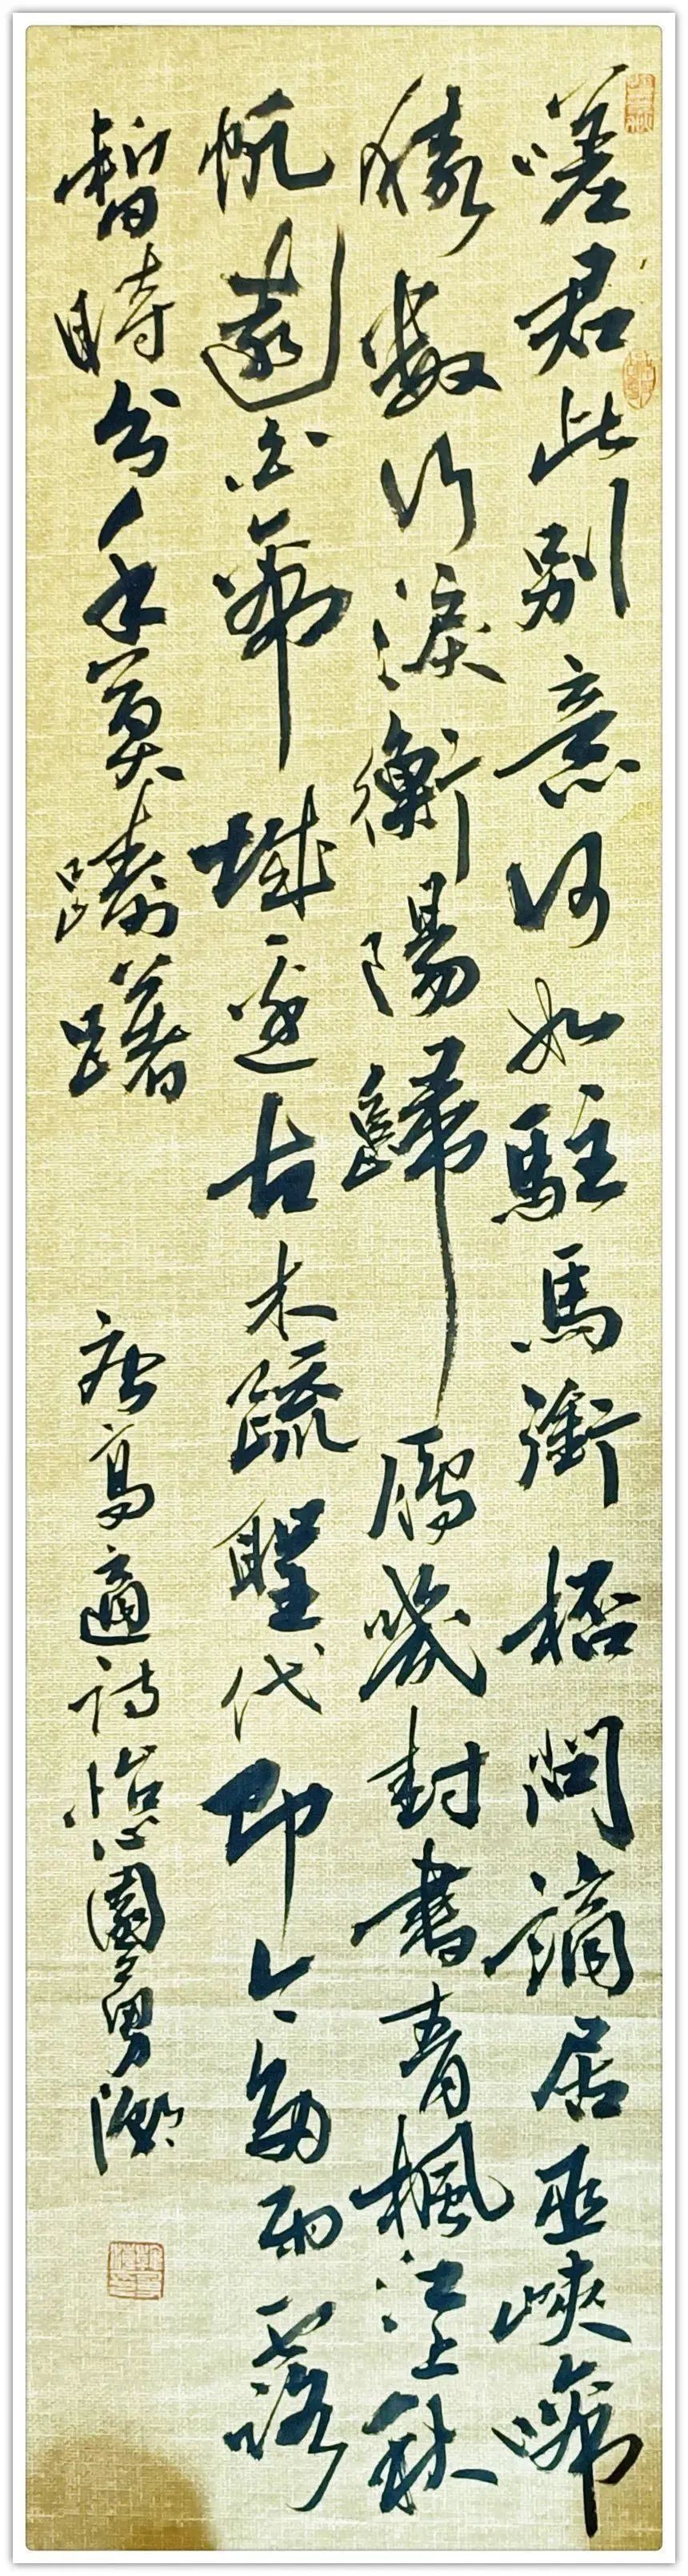 嗟君此別意何如駐馬銜桮問謫居巫峽啼
猿數行淚衡陽歸鴈幾封書青楓江上秋
帆遠白帝城邊古木疏聖代即今多雨露
暫時分手莫躊躇 唐高適詩園